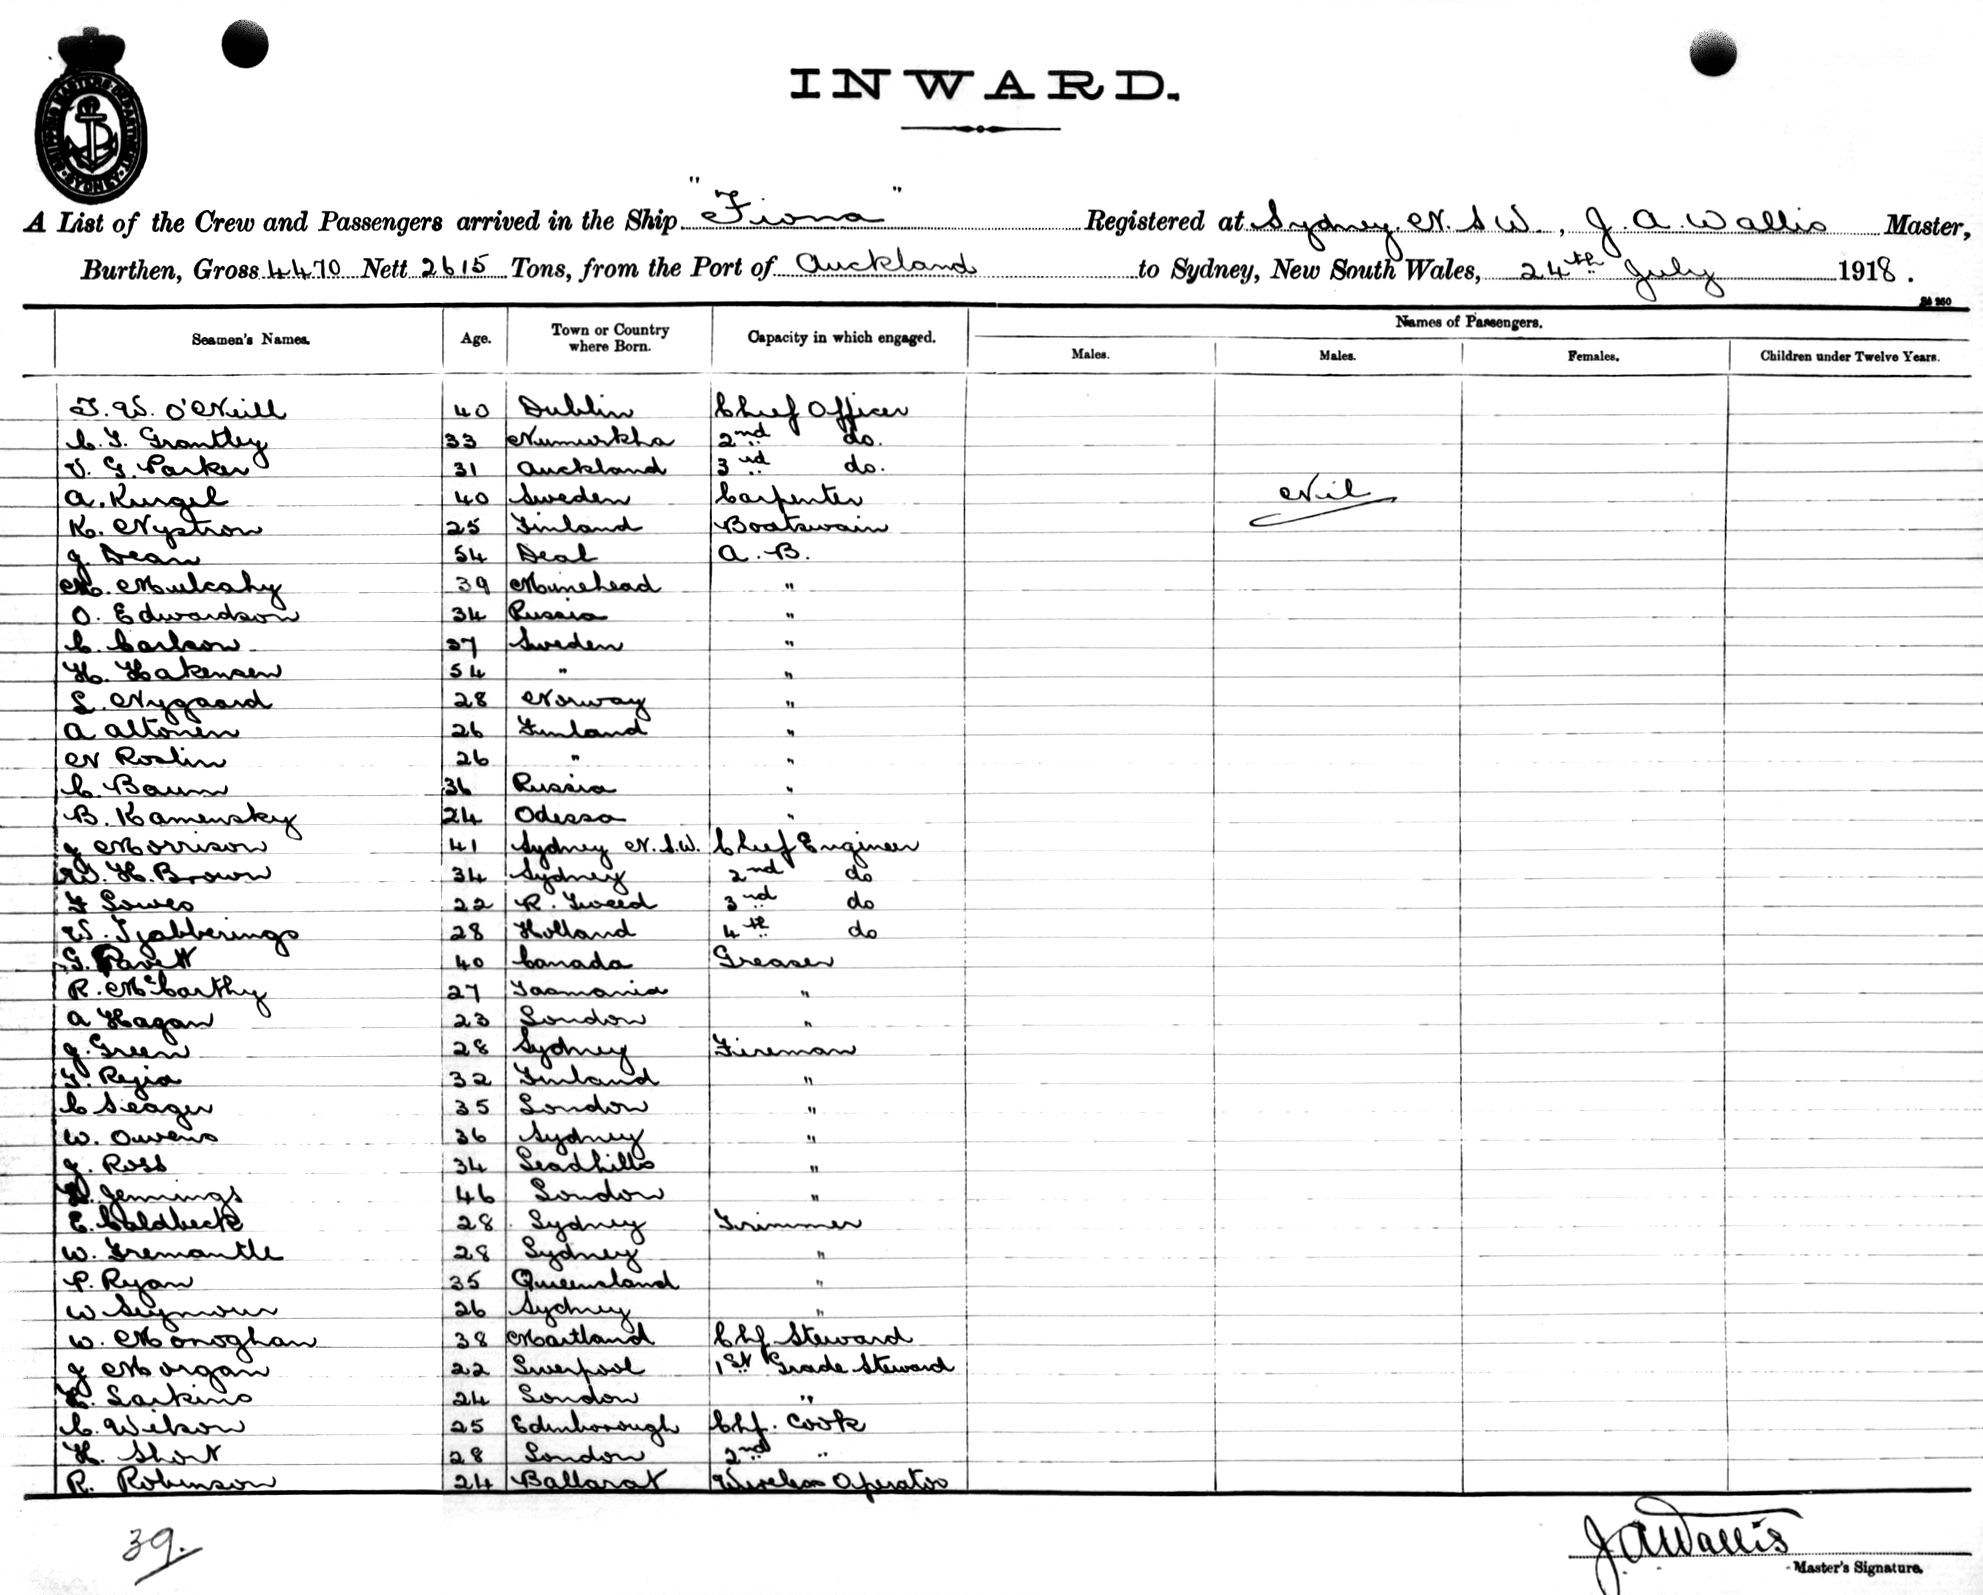 SHIPPING MASTERS DEPARTMENT SYDNEY
INWARD.
A List of the Crew and Passengers arrived in the Ship "Fiona" Registered at Sydney. N. S W., J. A. Wallis Master,
Burthen, Gross 4470 Nett 2615 Tons, from the Port of Auckland to Sydney, New South Wales, 24th July 1918.
Seamen's Names. Age. Town or Country where Born. Capacity in which engaged. Names of Passengers.
Males. Males. Females. Children under Twelve Years.
T. W. O'Neill 40 Dublin Chief Officer
C. T. Grantley 33 Numurkha 2nd do.
V. G. Parker 31 Auckland 3rd do.
A. Kurgel 40 Sweden Carpenter Nil
K. Nystron 25 Finland Boatswain
J. Dean 54 Deal A. B.
M. Mulcahy 39 Minehead "
O. Edwardson 34 Russia "
C. Carlson 37 Sweden "
H. Hakensen 54 " "
L. Nygaard 28 Norway "
A Altonen 26 Finland "
N Roslin 26 " "
C. Baum 36 Russia "
B. Kamensky 24 Odessa "
J Morrison 41 Sydney N.S.W. Chief Engineer
W. H. Brown 34 Sydney 2nd do
F Lowes 22 R. Tweed 3rd do
W. Tjabberings 28 Holland 4th do
G. Pavett 40 Canada Greaser
R. McCarthy 27 Tasmania "
A Hagan 23 London "
J. Green 28 Sydney Fireman
T. Rejia 32 Finland "
C Seager 35 London "
W. Owens 36 Sydney "
J. Ross 34 Leadhills "
Jennings 46 London "
E. Coldbeck 28 Sydney Trimmer
W. Fremantle 28 Sydney "
P. Ryan 35 Queensland "
W Seymour 26 Sydney "
W. Monoghan 38 Maitland Chf. Steward
J Morgan 22 Liverpool 1st Grade Steward
Larkins 24 London "
C. Wilson 25 Edinborough Chf. Cook
H. Short 28 London 2nd "
R. Robinson 24 Ballarat Wireless Operator
39.
J A Wallis
Master's Signature.